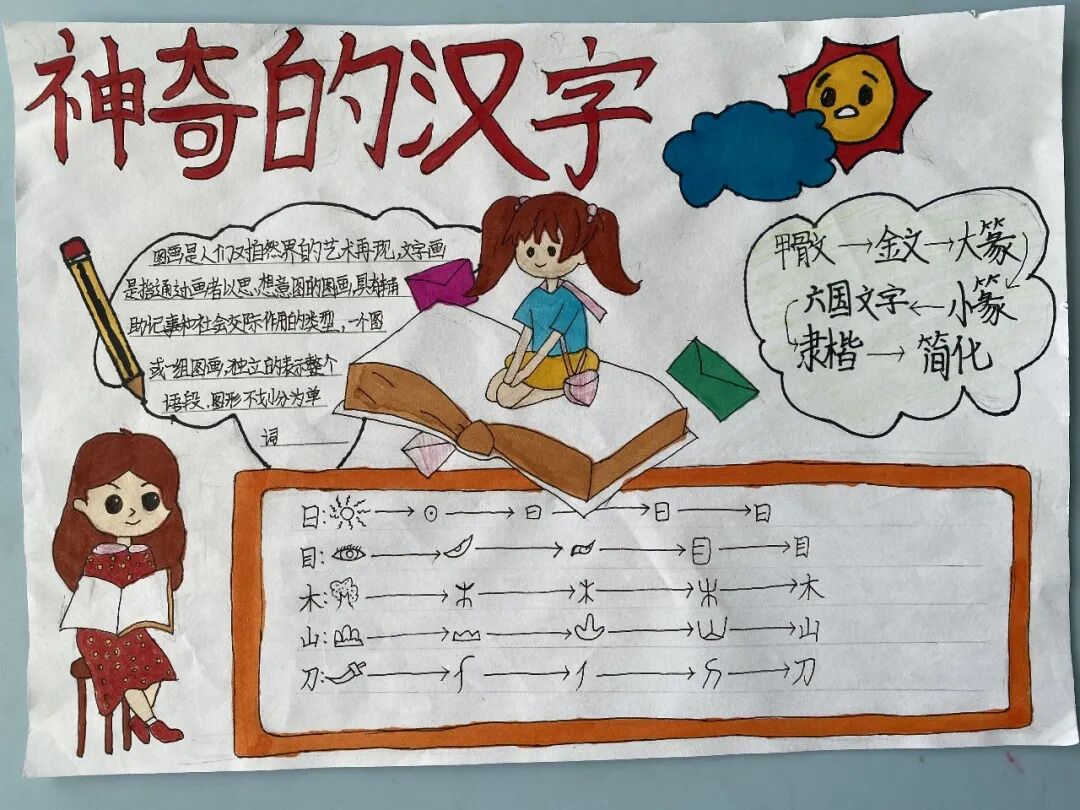 神奇的汉字
图画是人们对自然界的艺术再现,文字画
是指通过画者以思、想意图的图画,具有辅
助记事和社会交际作用的类型,一个图
或一组图画,独立的表示整个
语段,图形不划分为单
词
甲骨文→金文→大篆
六国文字←小篆
隶楷→简化
日: → ⊙ → 日 → 日 → 日
目: → → → 目 → 目
木: → 木 → 木 → 木 → 木
山: → → → 山 → 山
刀: → → → → 刀